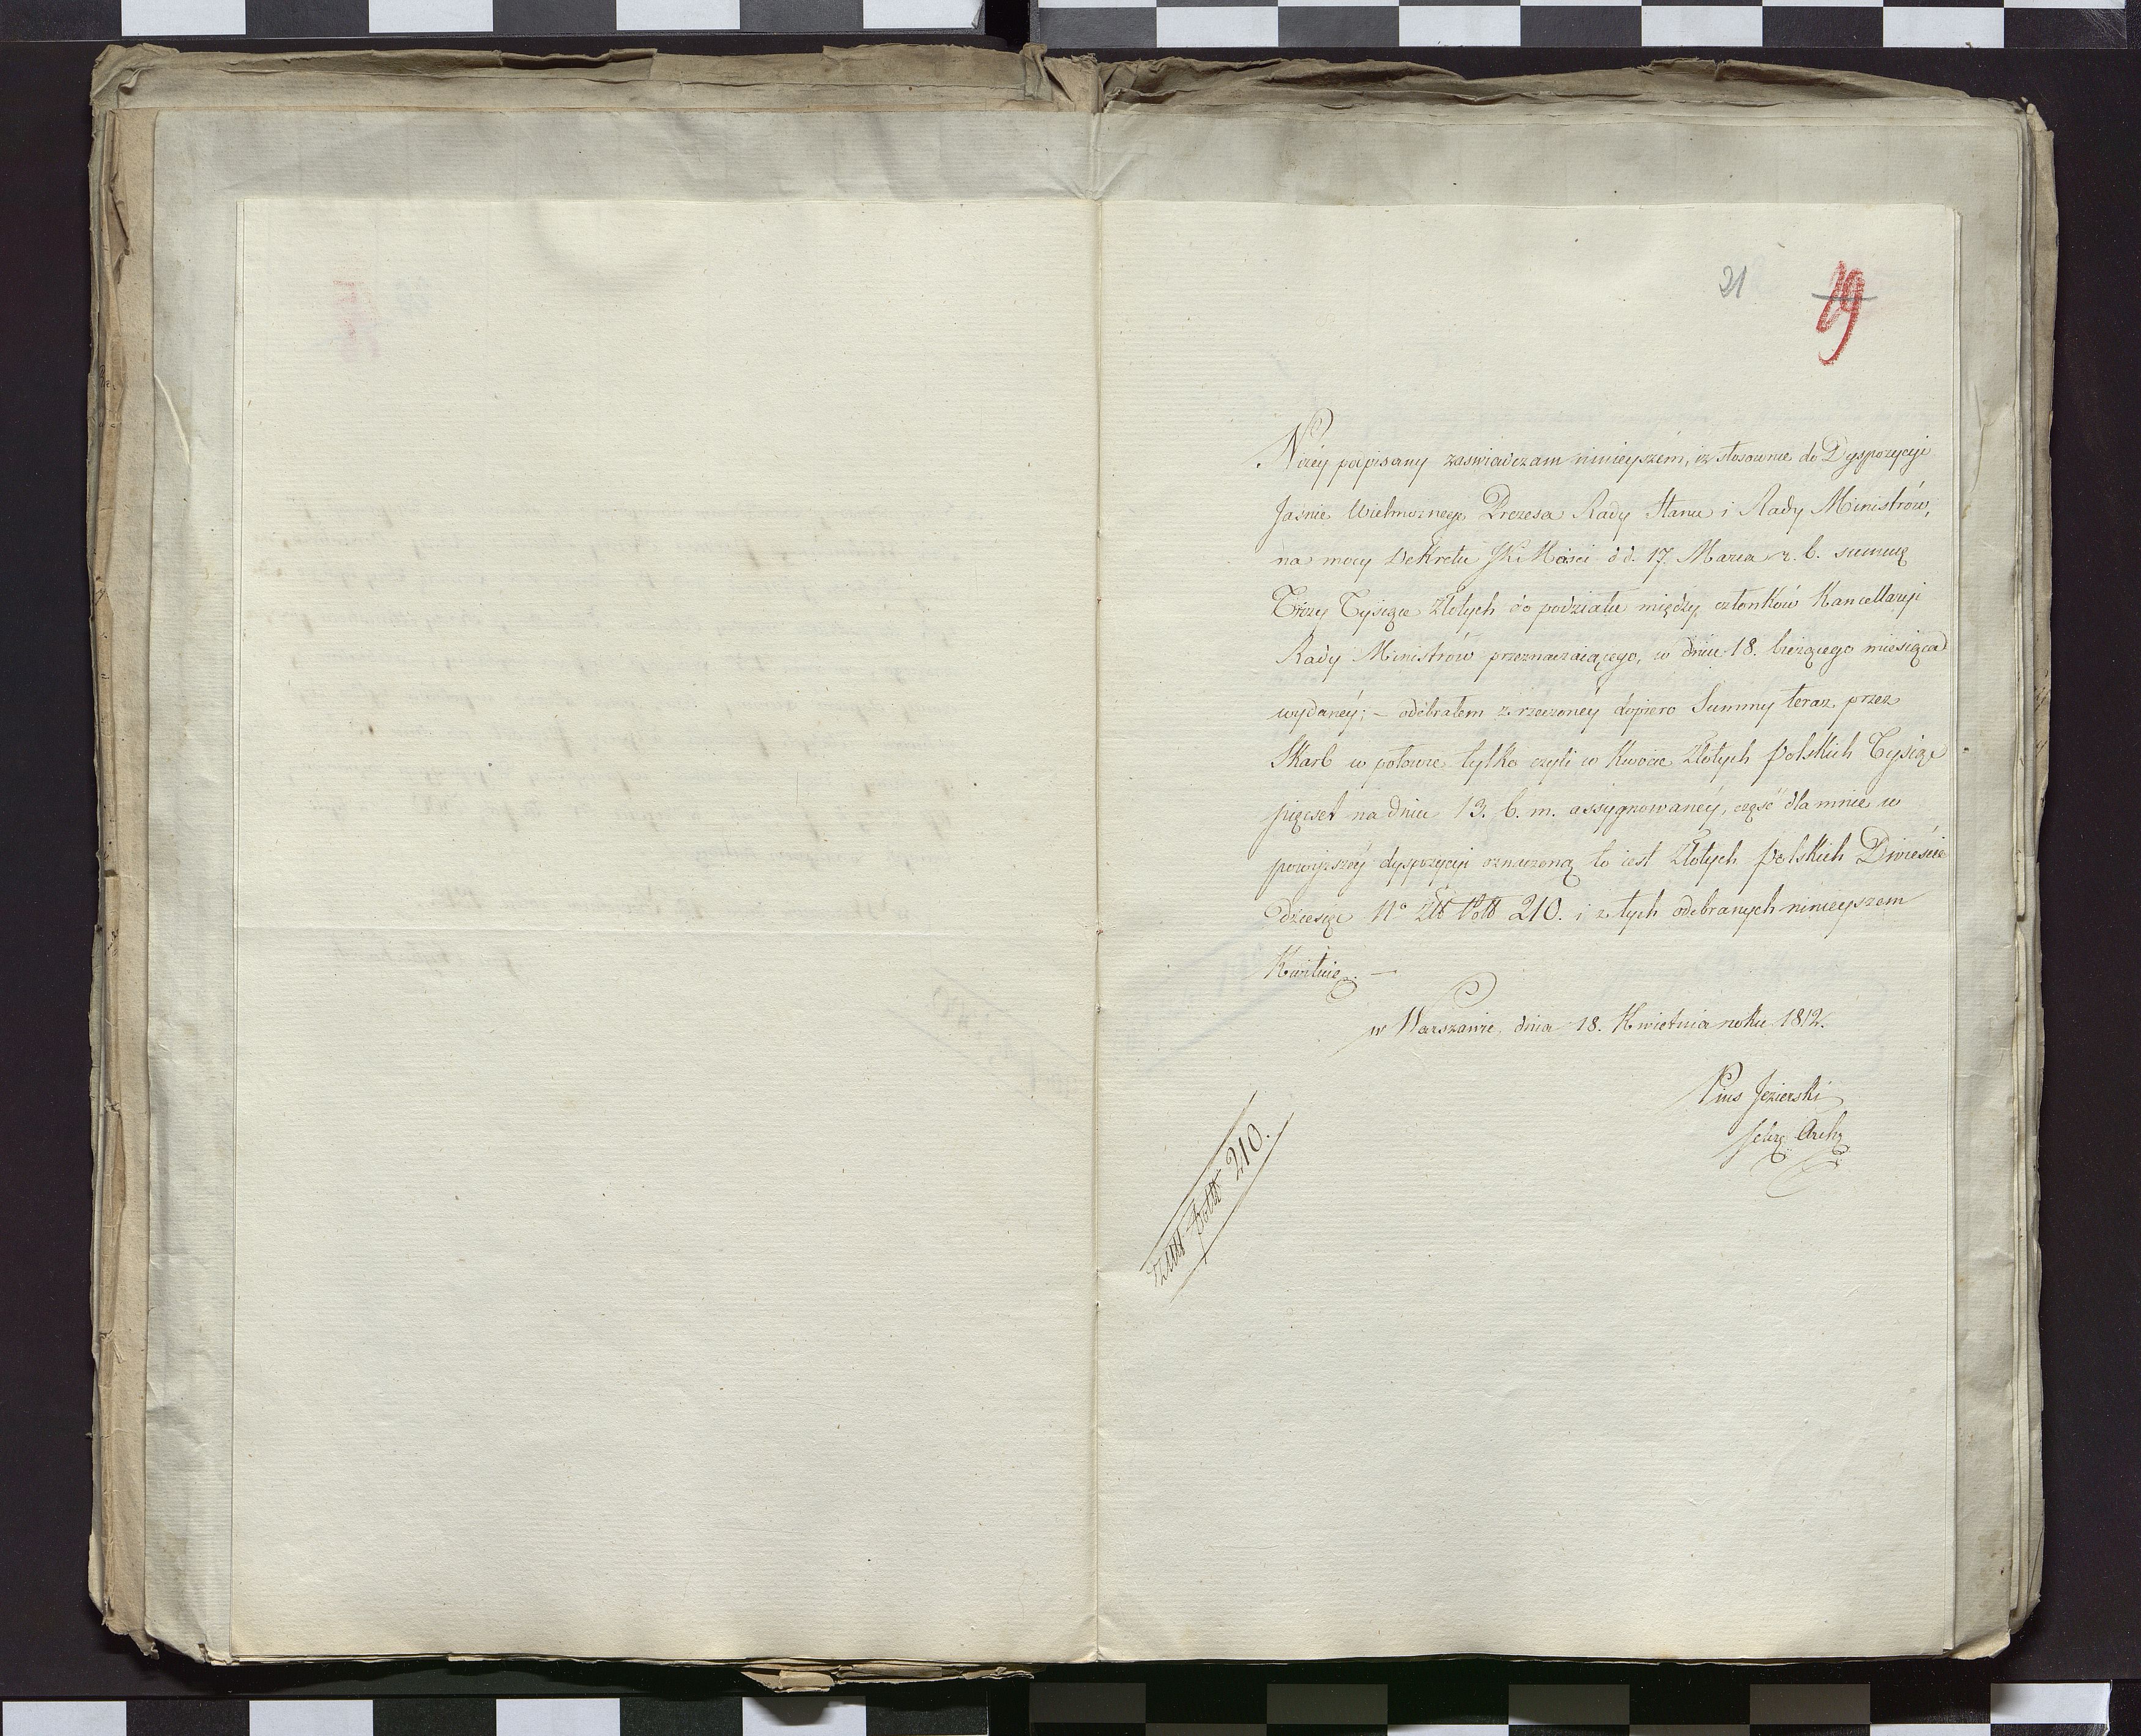 21 19
Niżey popisany zaświadczam ninieyszém, iż stosownie do Dyspozycyi
Jaśnie Wielmożnego Prezesa Rady Stanu i Rady Ministrów,
na mocy Dekretu JKMości d d. 17. Marca r. b. summę
Trzy Tysiące Złotych do podziału między członków Kancellaryi
Rady Ministrów przeznaczaiącego, w dniu 18. bieżącego miesiąca
wydanéy; – odebrałem z rzeczonéy dopiero Summy teraz przez
Skarb w połowie tylko czyli w Kwocie Złotych Polskich Tysiąc
pięcset na dniu 13. b. m. assygnowanéy, część dla mnie w
powyższéy dyspozycyi oznaczoną to iest Złotych Polskich Dwieście
dziesięc No Złt Polt 210. i z tych odebranych ninieyszem
Kwituię. –
w Warszawie, dnia 18. Kwietnia roku 1812.
Pius Jezierski
Sekrz Archz
210.